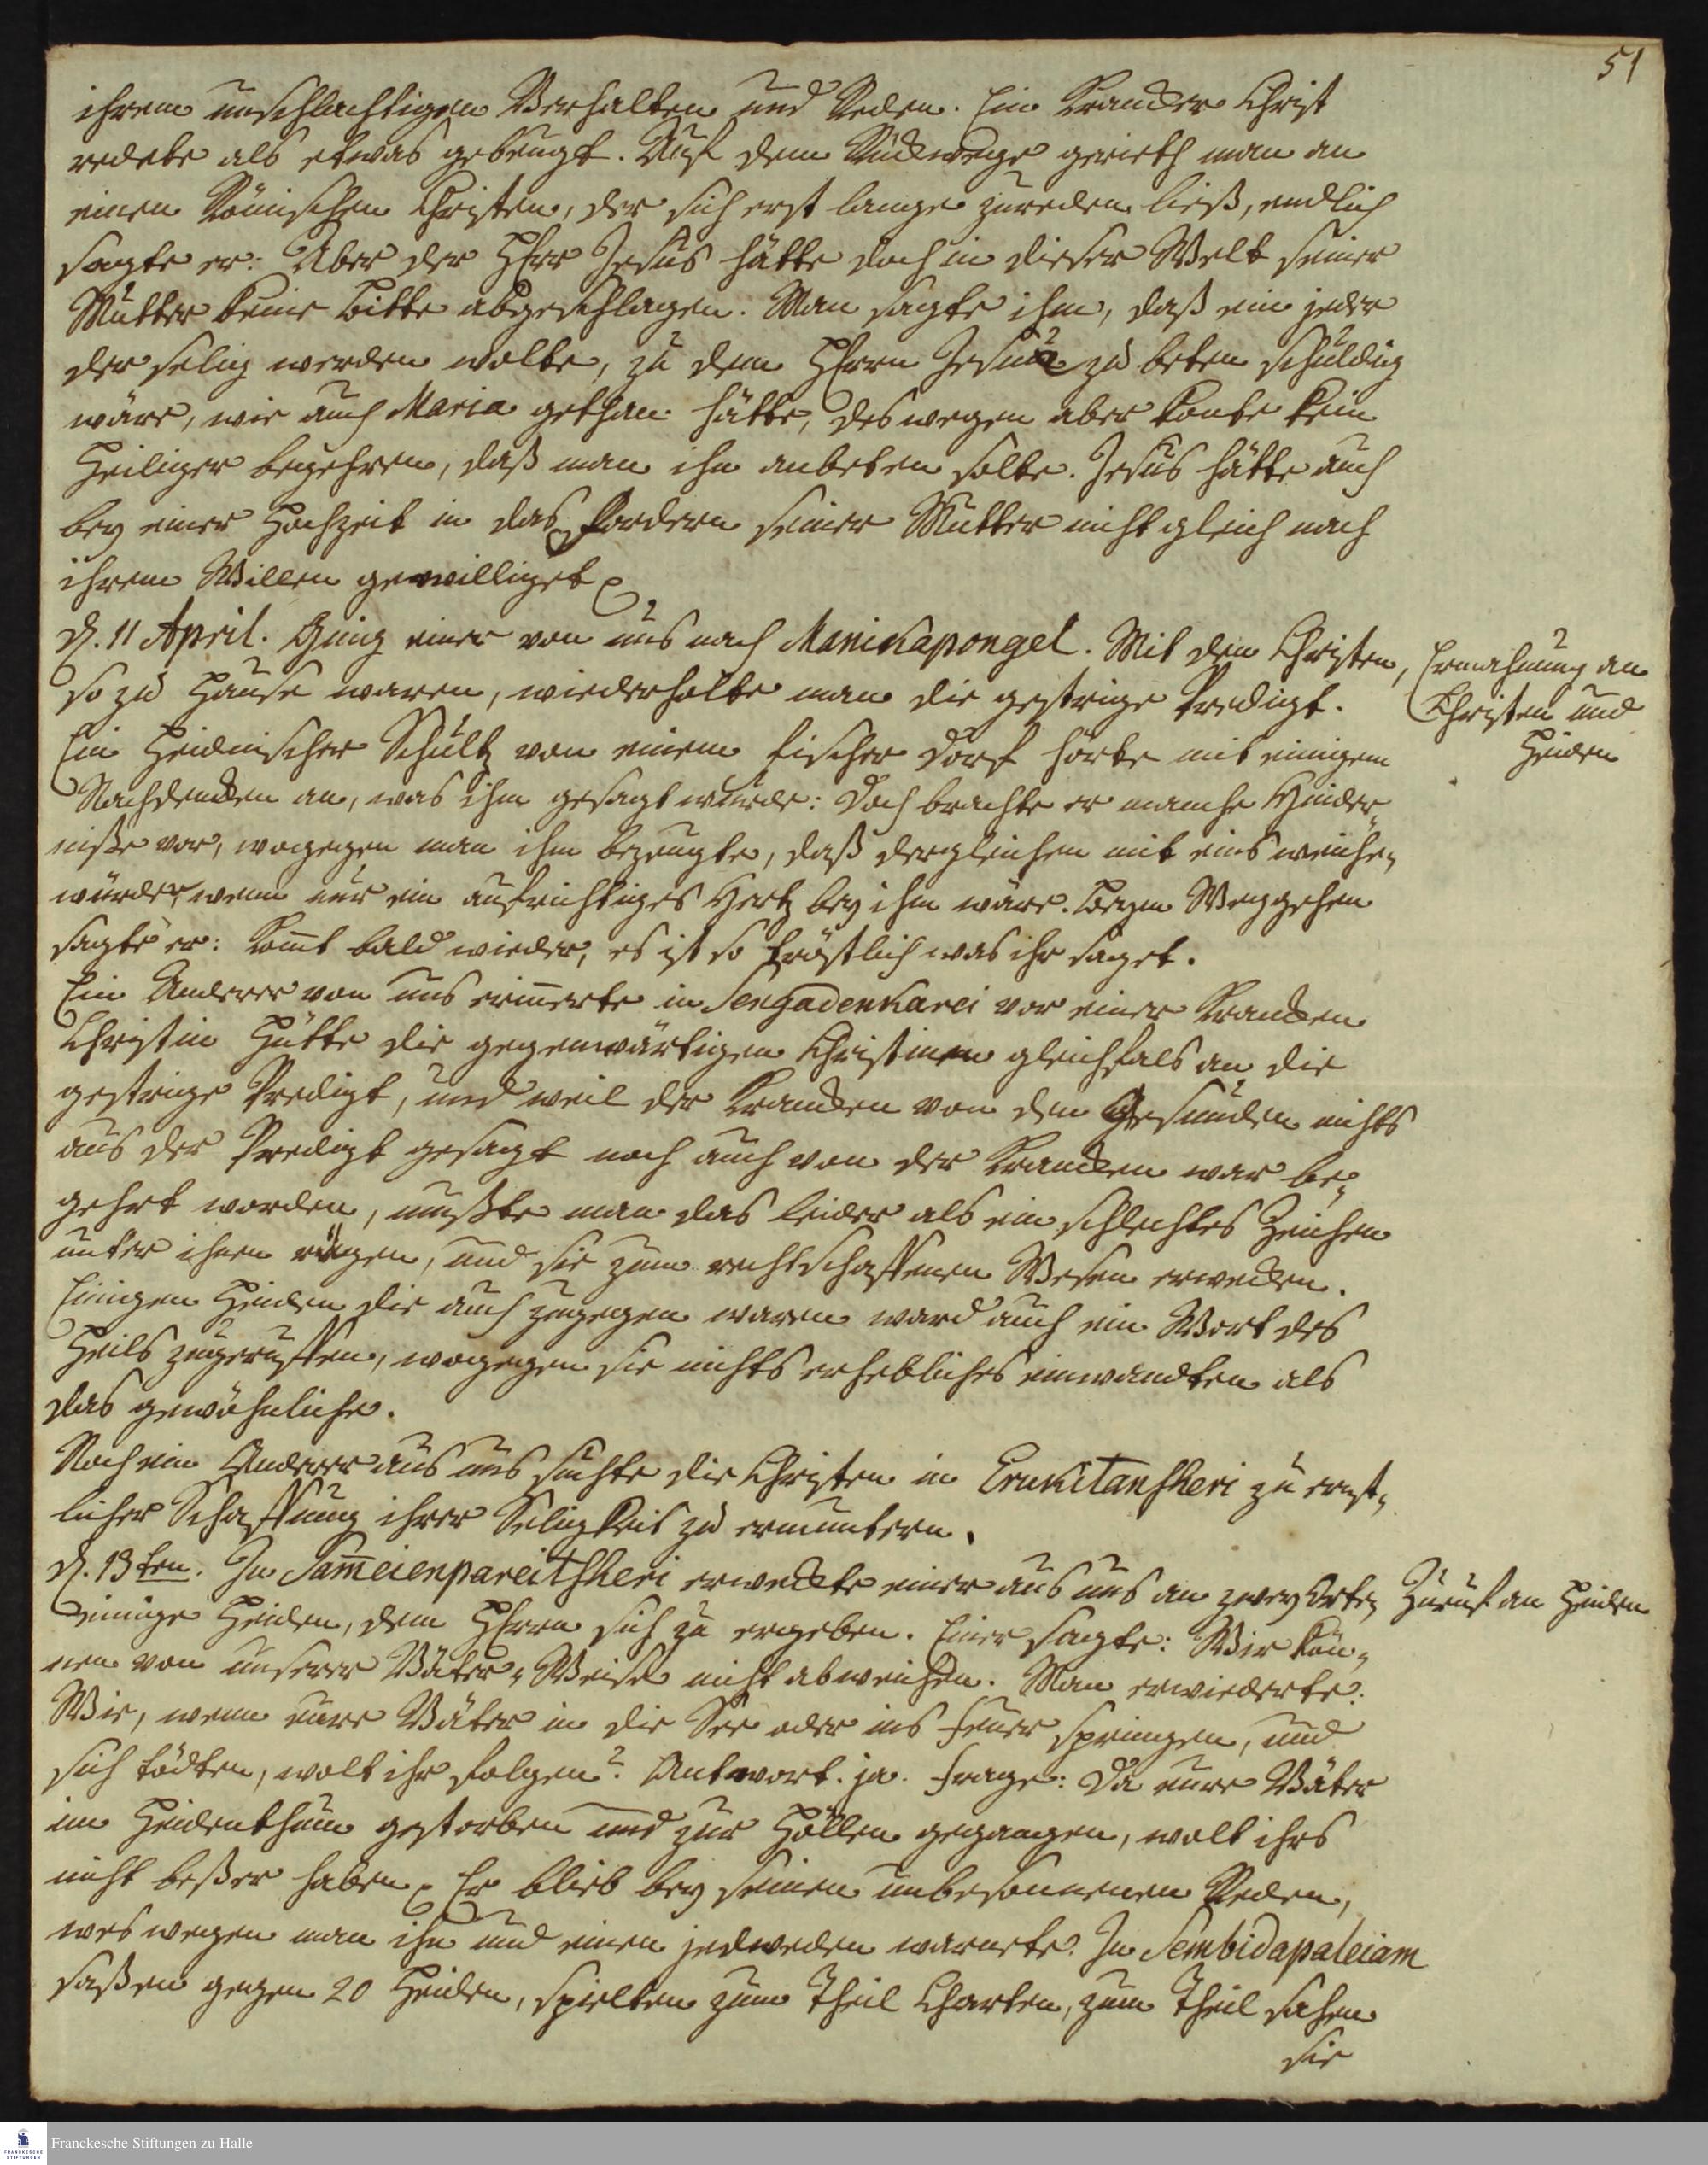 51
ihrem unschlachtigen Verhalten und Reden. Ein Krancker Christ
redete als etwas gebeugt. Auf dem Rückwege gerieth man an
einen Römischen Christen, der sich erst lange zureden ließ, endlich
sagte er: Aber der HErr Jesus hätte doch in dieser Welt seiner
Mutter keine Bitte abgeschlagen. Man sagte ihm, daß ein jeder
der selig werden wolte, zu dem HErrn Jesu zu beten schuldig
wäre, wie auch Maria gethan hätte, deswegen aber konte kein
Heiliger begehren, daß man ihn anbeten solte. Jesus hätte auch
bey einer Hochzeit in das Fordern seiner Mutter nicht gleich nach
ihrem Willen gewilliget
d. 11 April. Ging einer von uns nach Manikapongel. Mit den Christen,
so zu Hause waren, wiederholte man die gestrige Predigt.
Ermahnung an
Christen und
Heiden
Ein Heidnischer Schultz von einem Fischer Dorf hörte mit einigem
Nachdencken an, was ihm gesagt wurde: Doch brachte er manche Hinder„
niße vor, wogegen man ihm bezeugte, daß dergleichen mit eins weichen
würden, wenn nur ein aufrichtiges Hertz bey ihm wäre. Beym Weggehen
sagte er: Komt bald wieder, es ist so tröstlich was ihr saget.
Ein Anderer von uns erinnerte in Sengadenkarei vor einer Krancken
Christin Hütte die gegenwärtigen Christinen gleichfals an die
gestrige Predigt, und weil der Krancken von den Gesunden nichts
aus der Predigt gesagt noch auch von der Krancken war be„
gehrt worden, mußte man das leider als ein schlechtes Zeichen
unter ihnen rügen, und sie zum rechtschaffenen Wesen erwecken.
Einigen Heiden die auch zugegen waren ward auch ein Wort des
Heils zugeruffen, wogegen sie nichts erhebliches einwandten als
das gewöhnliche.
Noch ein Anderer aus uns suchte die Christen in Erukitansheri zu ernst„
licher Schaffung ihrer Seligkeit zu ermuntern.
d. 13ten. In Sam̅eienpareitsheri erweckte einer aus uns an zwey Orten
Zuruf an Heiden
einige Heiden, dem HErrn sich zu ergeben. Einer sagte: Wir kön„
nen von unserer Väter„Weise nicht abweichen. Man erwiederte:
Wie, wenn eure Väter in die See oder ins Feuer springen, und
sich tödten, wolt ihr folgen? Antwort. ja. Frage: Da eure Väter
im Heidenthum gestorben und zur Höllen gegangen, wolt ihrs
nicht beßer haben Er blieb bey seinen unbesonnenen Reden,
weswegen man ihn und einen jedweden warnete. In Sembidapaleiam
saßen gegen 20 Heiden, spielten zum Theil Charten, zum Theil sahen
sie
Franckesche Stiftungen zu Halle
FRANCKESCHE STIFTUNGEN